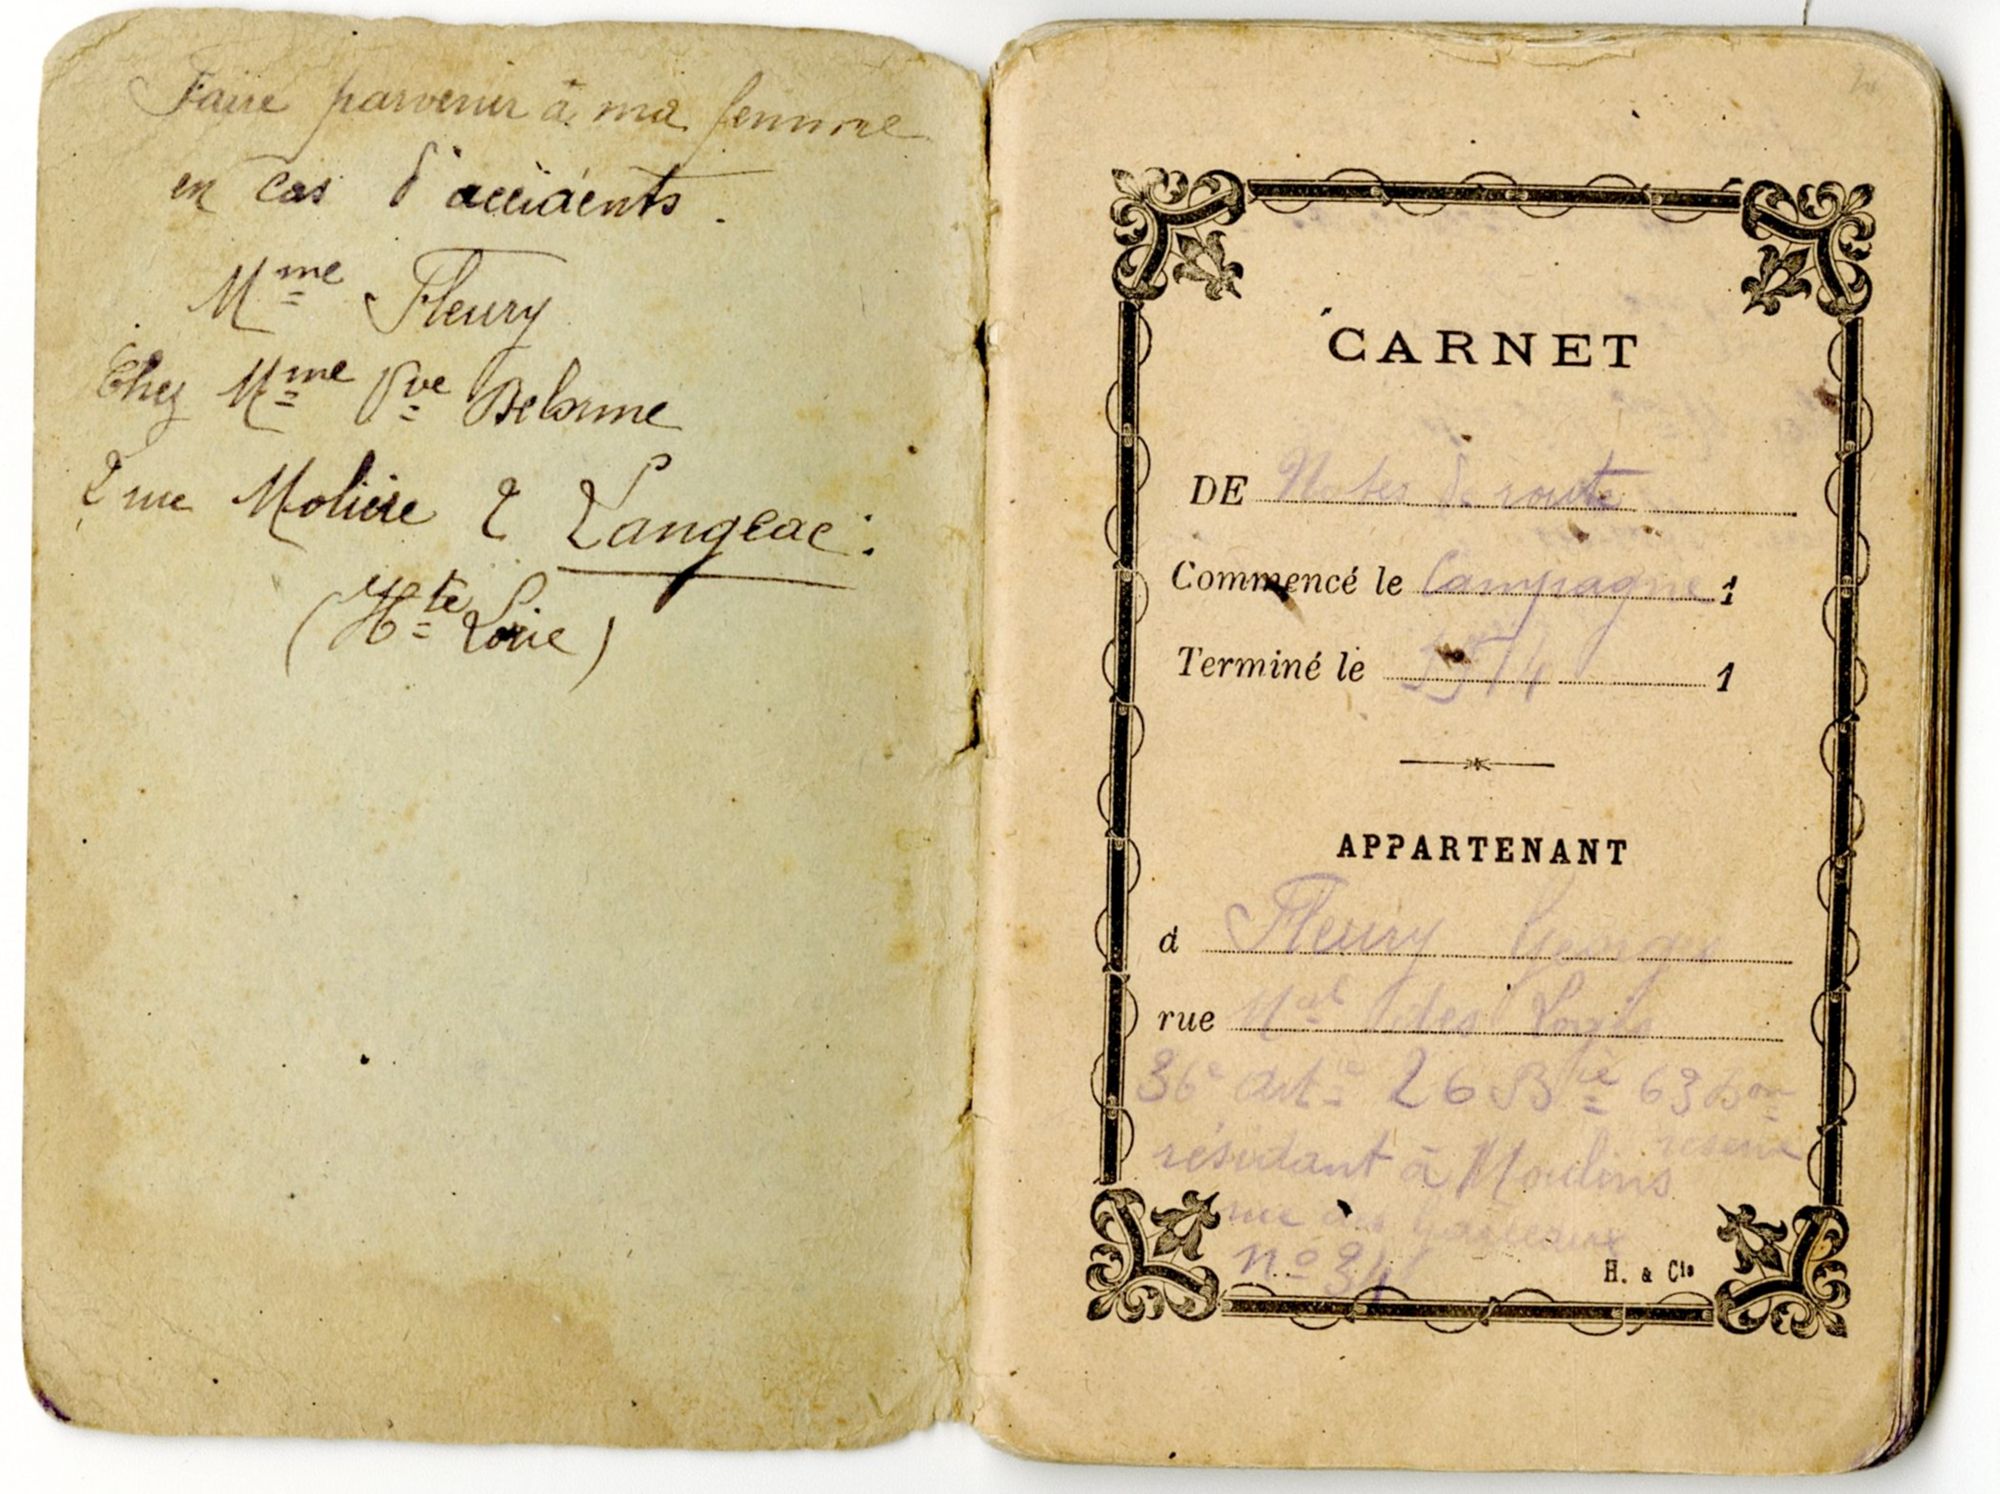 Faire parvenir à ma femme
en cas d'accidents.
Mme Fleury
Chez Mme Vve
rue Molière à Langeac:
(Hte Loire)
CARNET
DE Notes de route
Commencé le Campagne 1
Terminé le 1914 1
APPARTENANT
à Fleury Georges
rue Mal des Logis
36e artie 26 Bie 63 Don
reserve
résidant à Moulins
rue des
no 34
H. & Cie